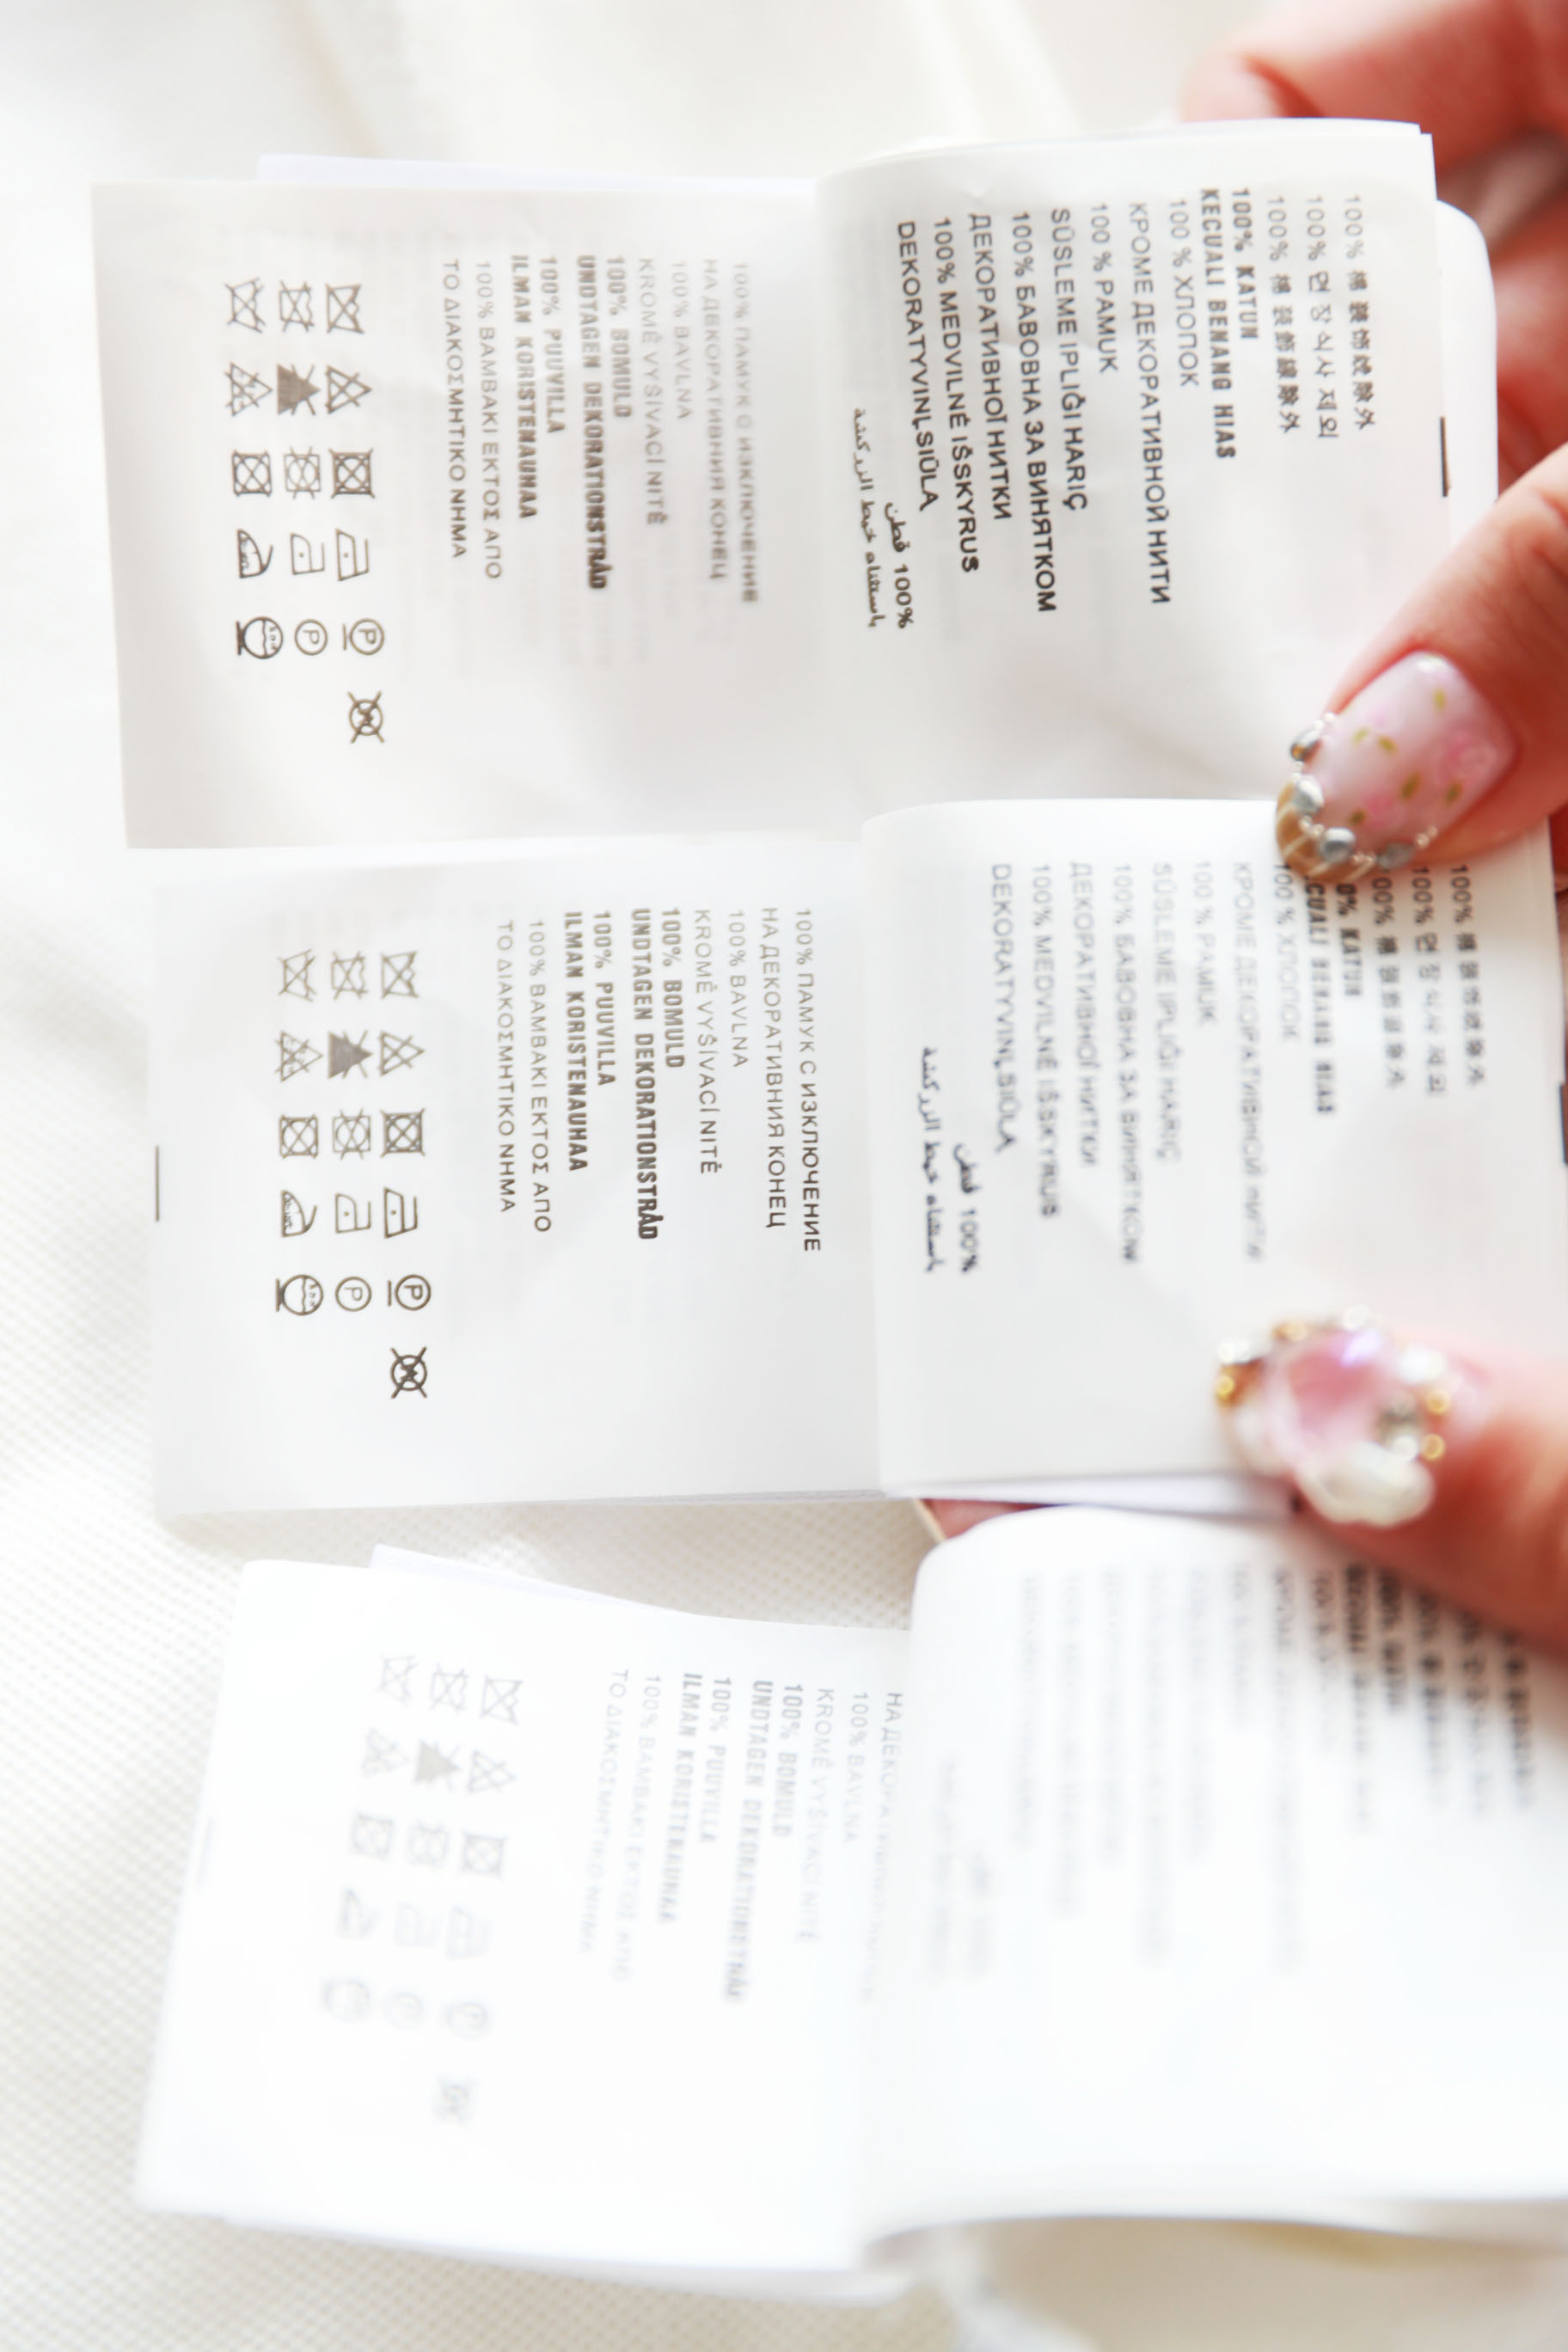 100% 棉 装饰线除外
100% 면 장식사 제외
100% 棉 裝飾線除外
100% KATUN
KECUALI BENANG HIAS
100 % ХЛОПОК
КРОМЕ ДЕКОРАТИВНОЙ НИТИ
100 % PAMUK
SÜSLEME IPLIĞI HARIÇ
100% БАВОВНА ЗА ВИНЯТКОМ
ДЕКОРАТИВНОЇ НИТКИ
100% MEDVILNĖ IŠSKYRUS
DEKORATYVINĮ SIŪLĄ
100% قطن
باستثناء خيط الزركشة
100% ПАМУК С ИЗКЛЮЧЕНИЕ
НА ДЕКОРАТИВНИЯ КОНЕЦ
100% BAVLNA
KROMĚ VYŠÍVACÍ NITĚ
100% BOMULD
UNDTAGEN DEKORATIONSTRÅD
100% PUUVILLA
ILMAN KORISTENAUHAA
100% BAMBAKI ΕΚΤΟΣ ΑΠΟ
ΤΟ ΔΙΑΚΟΣΜΗΤΙΚΟ ΝΗΜΑ
P
W
P
100% 棉 装饰线除外
100% 면 장식사 제외
00% 棉 裝飾線除外
0% KATUN
CUALI BENANG HIAS
00 % ХЛОПОК
КРОМЕ ДЕКОРАТИВНОЙ НИТИ
100 % PAMUK
SÜSLEME IPLIĞI HARIÇ
100% БАВОВНА ЗА ВИНЯТКОМ
ДЕКОРАТИВНОЇ НИТКИ
100% MEDVILNĖ IŠSKYRUS
DEKORATYVINĮ SIŪLĄ
100% قطن
باستثناء خيط الزركشة
100% ПАМУК С ИЗКЛЮЧЕНИЕ
НА ДЕКОРАТИВНИЯ КОНЕЦ
100% BAVLNA
KROMĚ VYŠÍVACÍ NITĚ
100% BOMULD
UNDTAGEN DEKORATIONSTRÅD
100% PUUVILLA
ILMAN KORISTENAUHAA
100% BAMBAKI ΕΚΤΟΣ ΑΠΟ
ΤΟ ΔΙΑΚΟΣΜΗΤΙΚΟ ΝΗΜΑ
P
W
P
100% BAVLNA
KROMĚ VYŠÍVACÍ NITĚ
100% BOMULD
UNDTAGEN DEKORATIONSTRÅD
100% PUUVILLA
ILMAN KORISTENAUHAA
100% BAMBAKI ΕΚΤΟΣ ΑΠΟ
ΤΟ ΔΙΑΚΟΣΜΗΤΙΚΟ ΝΗΜΑ